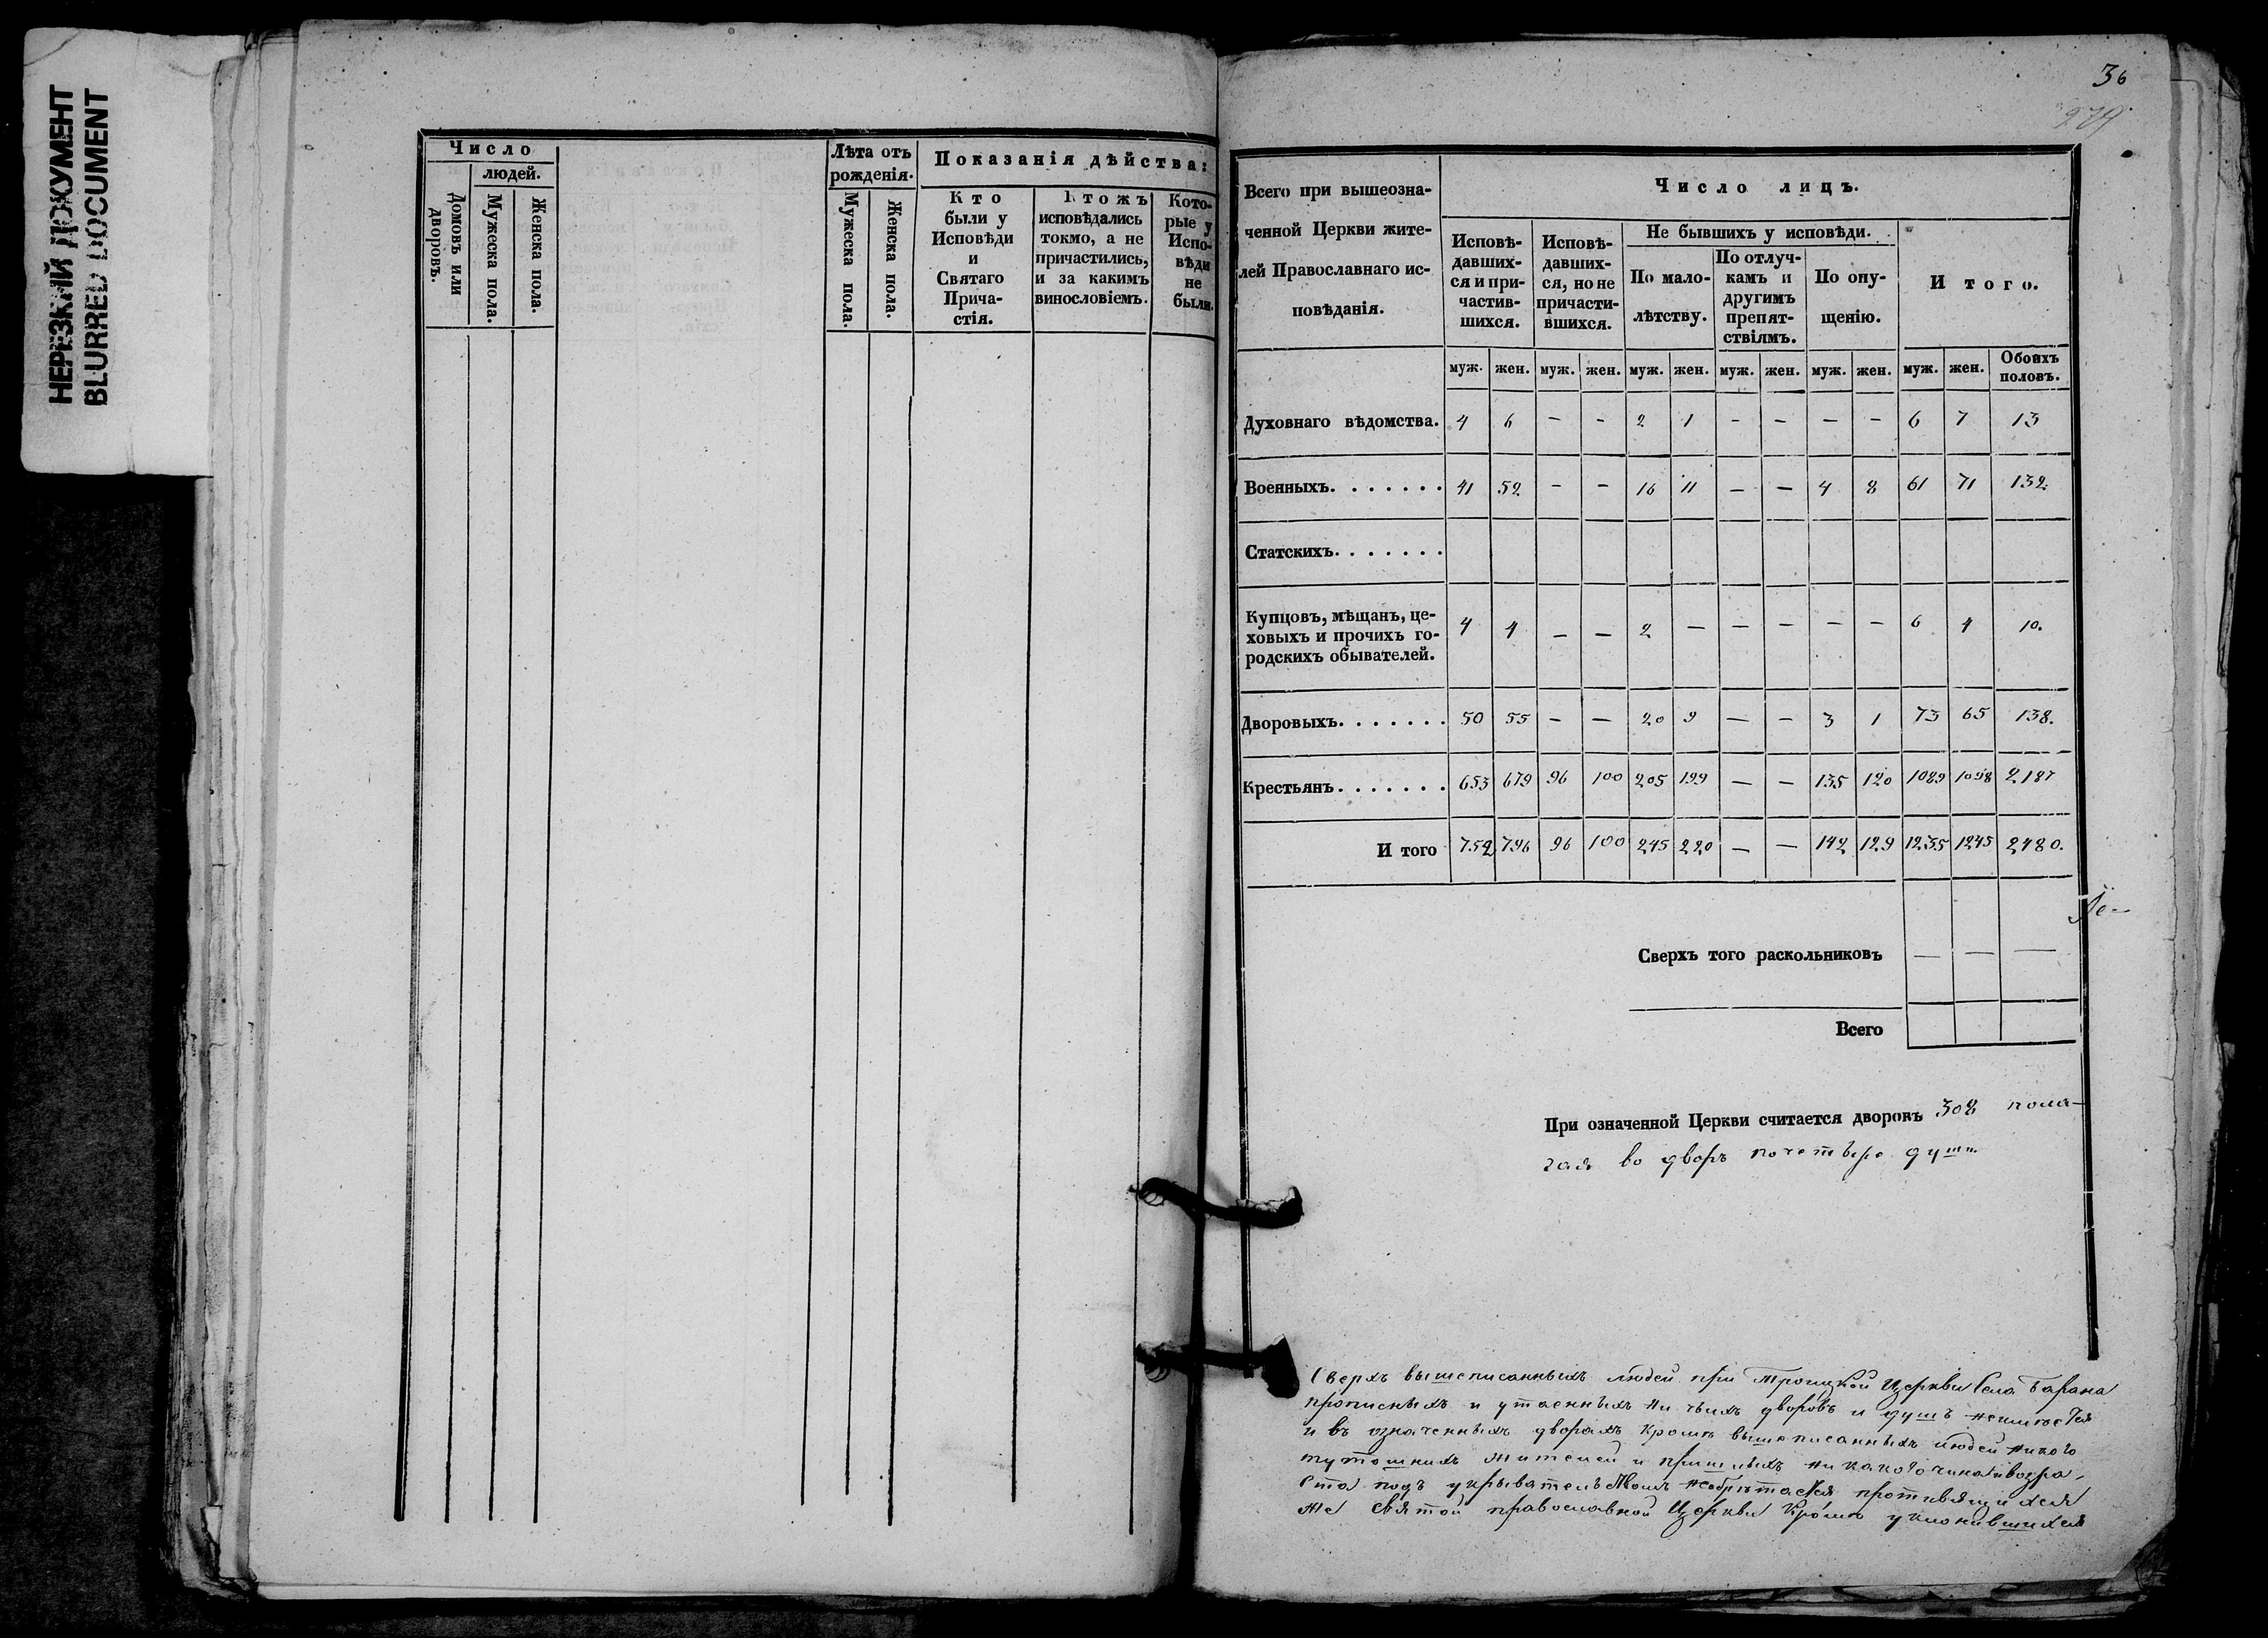 НЕРЕЗКИЙ ДОКУМЕНТ
BLURRED DOCUMENT
Число
людей.
Домовъ или дворовъ.
Мужеска пола.
Женска пола.
Лѣта отъ
рожденія.
Мужеска пола.
Женска пола.
Показанія дѣйства:
Кто
были у
Исповѣди
и
Святаго
Прича-
стія.
Ктожъ
исповѣдались
токмо, а не
причастились,
и за какимъ
винословіемъ.
Кото-
рые у
Испо-
вѣди
не
были.
36
279
Всего при вышеозна-
ченной Церкви жите-
лей Православнаго ис-
повѣданія.
Число лицъ.
Исповѣ-
давших-
ся и при-
частив-
шихся.
Исповѣ-
давших-
ся, но не
причасти-
вшихся.
Не бывшихъ у исповѣди.
По мало-
лѣтству.
По отлуч-
камъ и
другимъ
препят-
ствіямъ.
По опу-
щенію.
Итого.
муж. жен. муж. жен. муж. жен. муж. жен. муж. жен. муж. жен. Обоихъ половъ.
Духовнаго вѣдомства. 4 6 — - 2 1 - - — - 6 7 13
Военныхъ. . . . . . . 41 52 - - 16 11 — — 4 8 61 71 132.
Статскихъ. . . . . . .
Купцовъ, мѣщанъ, це-
ховыхъ и прочихъ го-
родскихъ обывателей. 4 4 — — 2 — — — — — 6 4 10.
Дворовыхъ. . . . . . . 50 55 — — 20 9 — - 3 1 73 65 138.
Крестьянъ. . . . . . . 653 679 96 100 205 199 — — 135 120 1089 1098 2187
И того 752 796 96 100 245 220 — — 142 129 1235 1245 2480.
Сверхъ того раскольниковъ — — —
Всего
При означенной Церкви считается дворовъ 308 пола-
гая во дворъ по четыре души
Сверхъ вышеписанныхъ людей при Троицкой Церкви Села Барана
прописныхъ и утаенныхъ ни чьихъ дворовъ и душъ неимѣется
и въ означенныхъ дворахъ кромѣ вышеписанныхъ людей никого
тутошнихъ жителей и пришлыхъ ни какого чина и возра-
ста подъ укрывательствомъ необрѣтается противящихся
же святой православной Церкви кромѣ уклонившихся